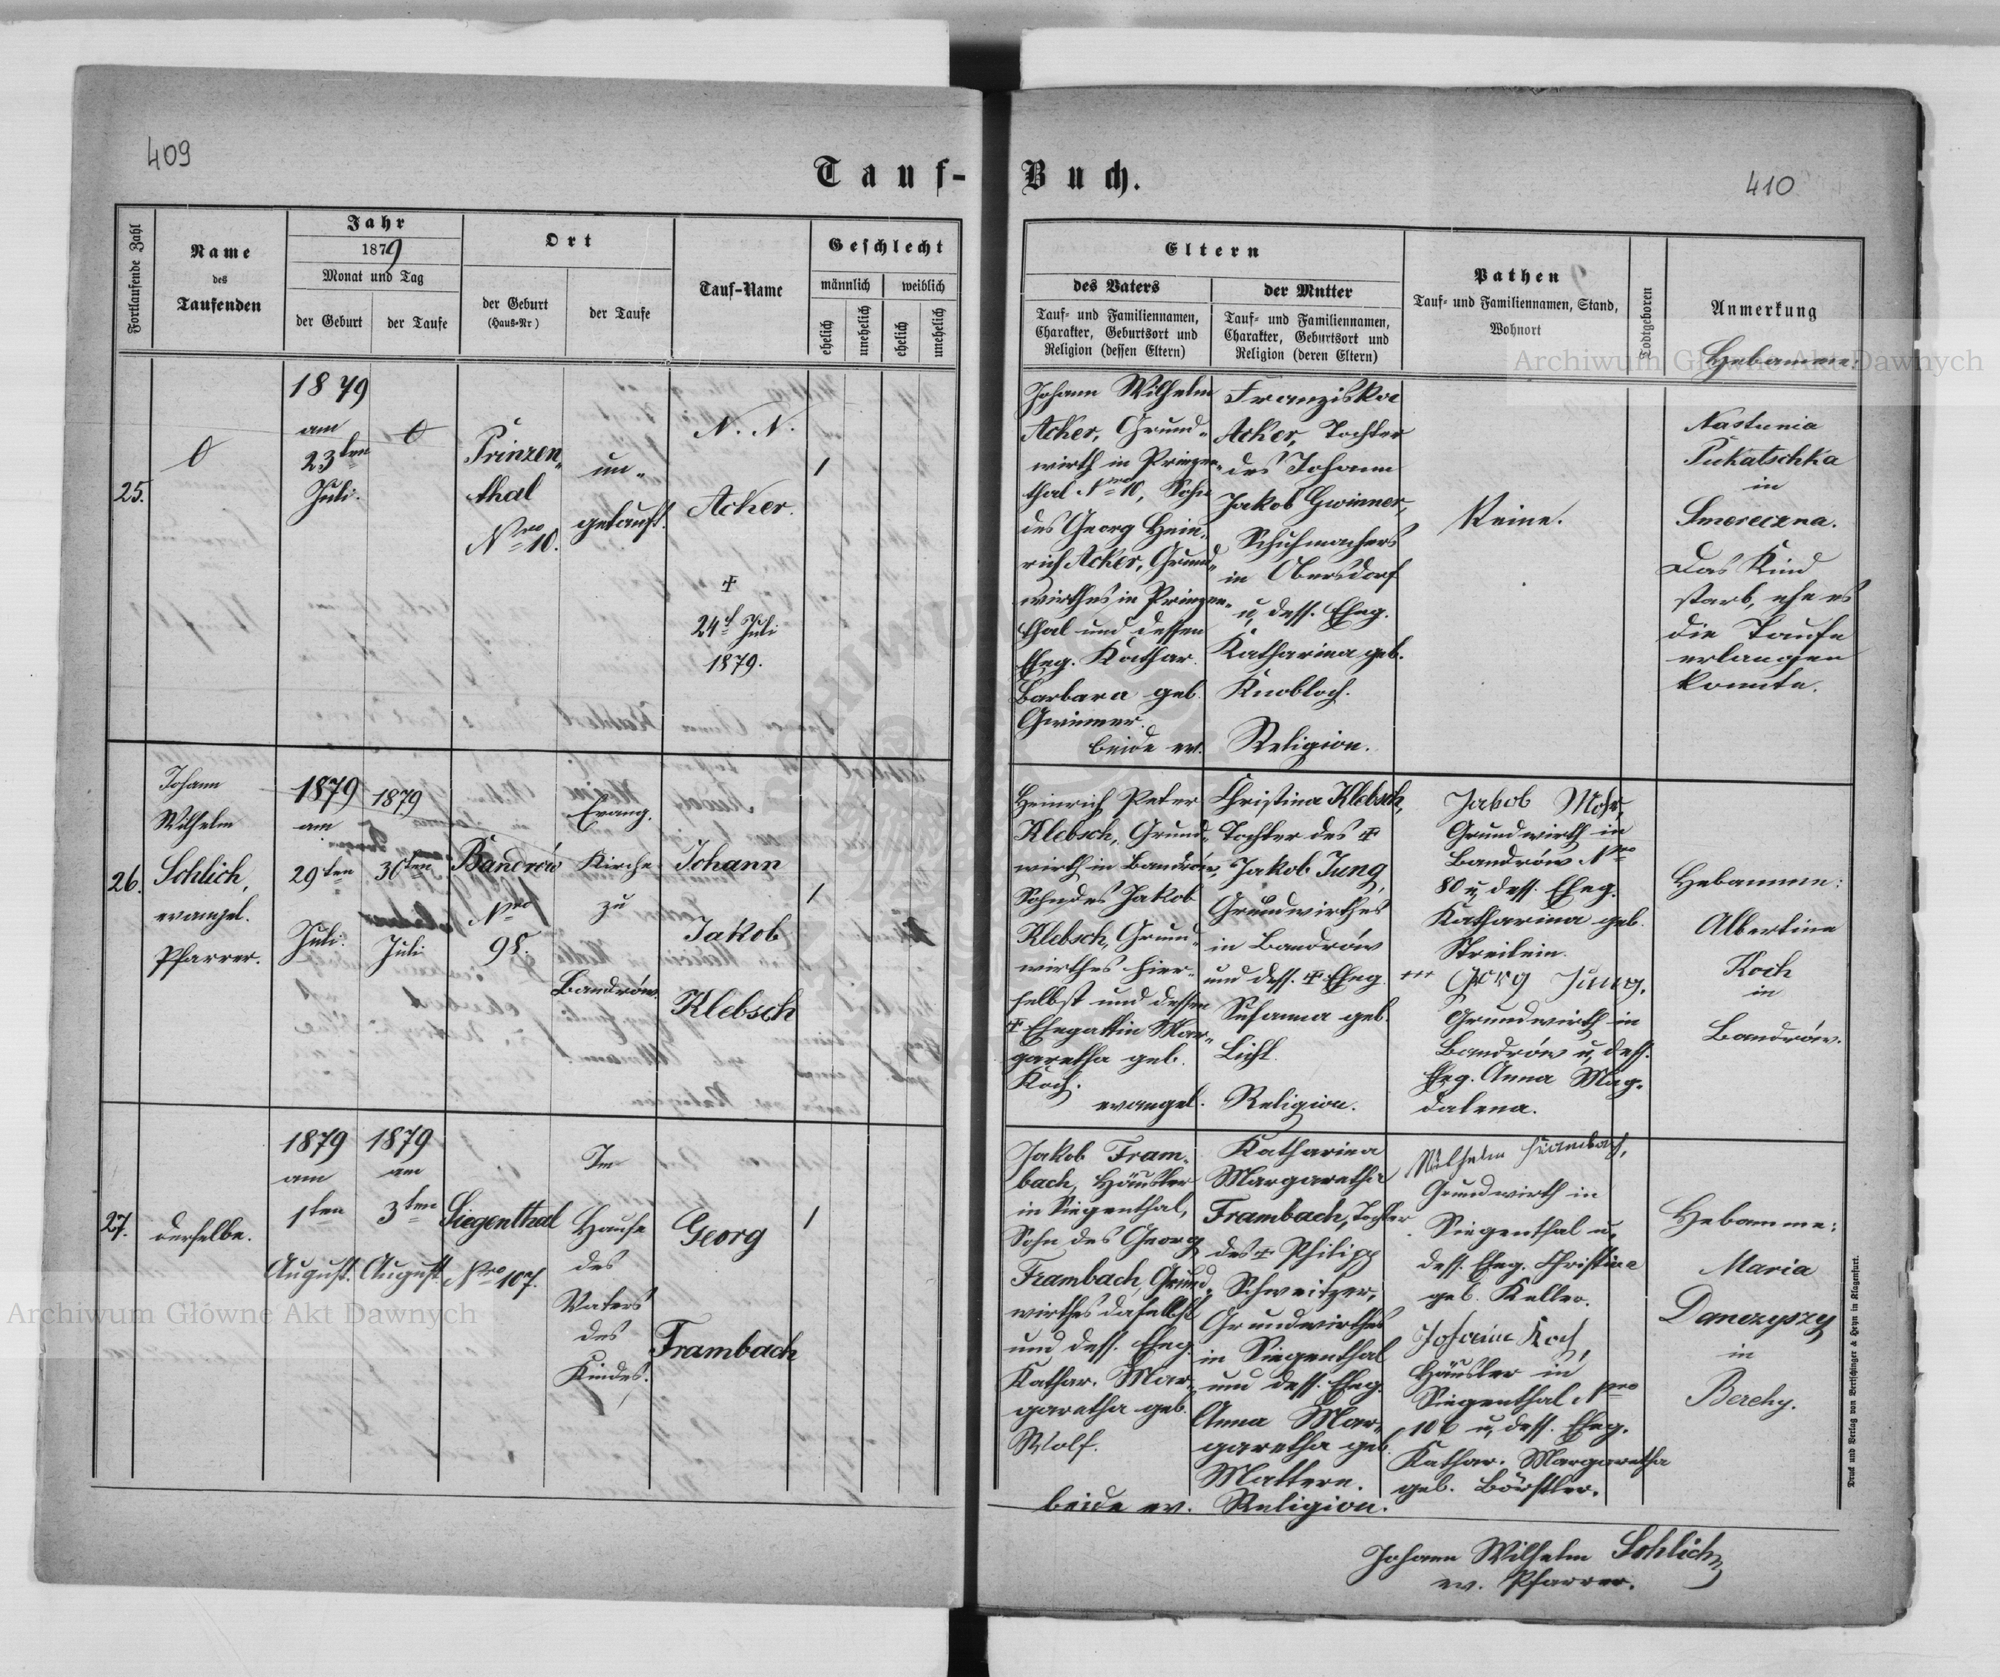 409
Tauf-
Buch.
410
Fortlaufende Zahl
Name
des
Taufenden
Jahr
1879
Monat und Tag
der Geburt
der Taufe
Ort
der Geburt
(Haus-Nr)
der Taufe
Tauf-Name
Geschlecht
männlich
weiblich
ehelich
unehelich
ehelich
unehelich
Eltern
des Vaters
Tauf- und Familiennamen,
Charakter, Geburtsort und
Religion (dessen Eltern)
der Mutter
Tauf- und Familiennamen,
Charakter, Geburtsort und
Religion (deren Eltern)
Pathen
Tauf- und Familiennamen, Stand,
Wohnort
Todtgeboren
Anmerkung
Hebamme.
25.
0
1879
am
23ten
Juli.
0
Prinzen-
thal
Nro 10.
un-
getauft.
N. N.
Acker.
†
24t Juli
1879.
1
Johann Wilhelm
Acker, Grund-
wirth in Prinzen-
thal Nro 10, Sohn
des Georg Hein-
rich Acker, Grund-
wirthes in Prinzen-
thal und dessen
Eheg. Kathar.
Barbara geb.
Gwinner.
beide ev.
Franziska
Acker, Tochter
des Johann
Jakob Gwinner,
Schuhmachers
in Obersdorf
u. dess. Eheg.
Katharina geb.
Knobloch.
Religion.
Keine.
Nastunia
Pukatschka
in
Smereczna.
Das Kind
starb, ehe es
die Taufe
erlangen
konnte.
26.
Johann
Wilhelm
Schlich,
evangel.
Pfarrer.
1879
am
29ten
Juli.
1879
30ten
Juli
Bandrów
Nro
98.
Evang.
Kirche
zu
Bandrów.
Johann
Jakob
Klebsch
1
Heinrich Peter
Klebsch, Grund-
wirth in Bandrów,
Sohn des Jakob
Klebsch, Grund-
wirthes hier-
selbst und dessen
† Ehegattin Mar-
garetha geb.
Koch.
evangel.
Christina Klebsch,
Tochter des †
Jakob Jung,
Grundwirthes
in Bandrów
und dess. † Eheg.
Susanna geb.
Licht.
Religion.
Jakob Mohr,
Grundwirth in
Bandrów Nro
80 u. dess. Eheg.
Katharina geb.
Streilein.
+++ Georg Jung,
Grundwirth in
Bandrów u. dess.
Eheg. Anna Mag-
dalena.
Hebamme:
Albertine
Koch
in
Bandrów.
27.
derselbe.
1879
am
1ten
August.
1879
am
3ten
August
Siegenthal
Nro 107.
Im
Hause
des
Vaters
des
Kindes.
Georg
Frambach
1
Jakob Fram-
bach, Häusler
in Siegenthal,
Sohn des Georg
Frambach, Grund-
wirthes daselbst
und dess. Eheg.
Kathar. Mar-
garetha geb.
Wolf.
beide ev.
Katharina
Margaretha
Frambach, Tochter
des † Philipp
Schweitzer,
Grundwirthes
in Siegenthal
und dess. Eheg.
Anna Mar-
garetha geb.
Mattern.
Religion.
Wilhelm Frambach,
Grundwirth in
Siegenthal u.
dess. Eheg. Christine
geb. Keller.
Johann Koch,
Häusler in
Siegenthal Nro
106 u. dess. Eheg.
Kathar. Margaretha
geb. Börstler.
Hebamme:
Maria
Danczyszy
in
Berehy.
Johann Wilhelm Schlich
ev. Pfarrer.
Druck und Verlag von Bertschinger & Heyn in Klagenfurt.
Archiwum Główne Akt Dawnych
Archiwum Główne Akt Dawnych